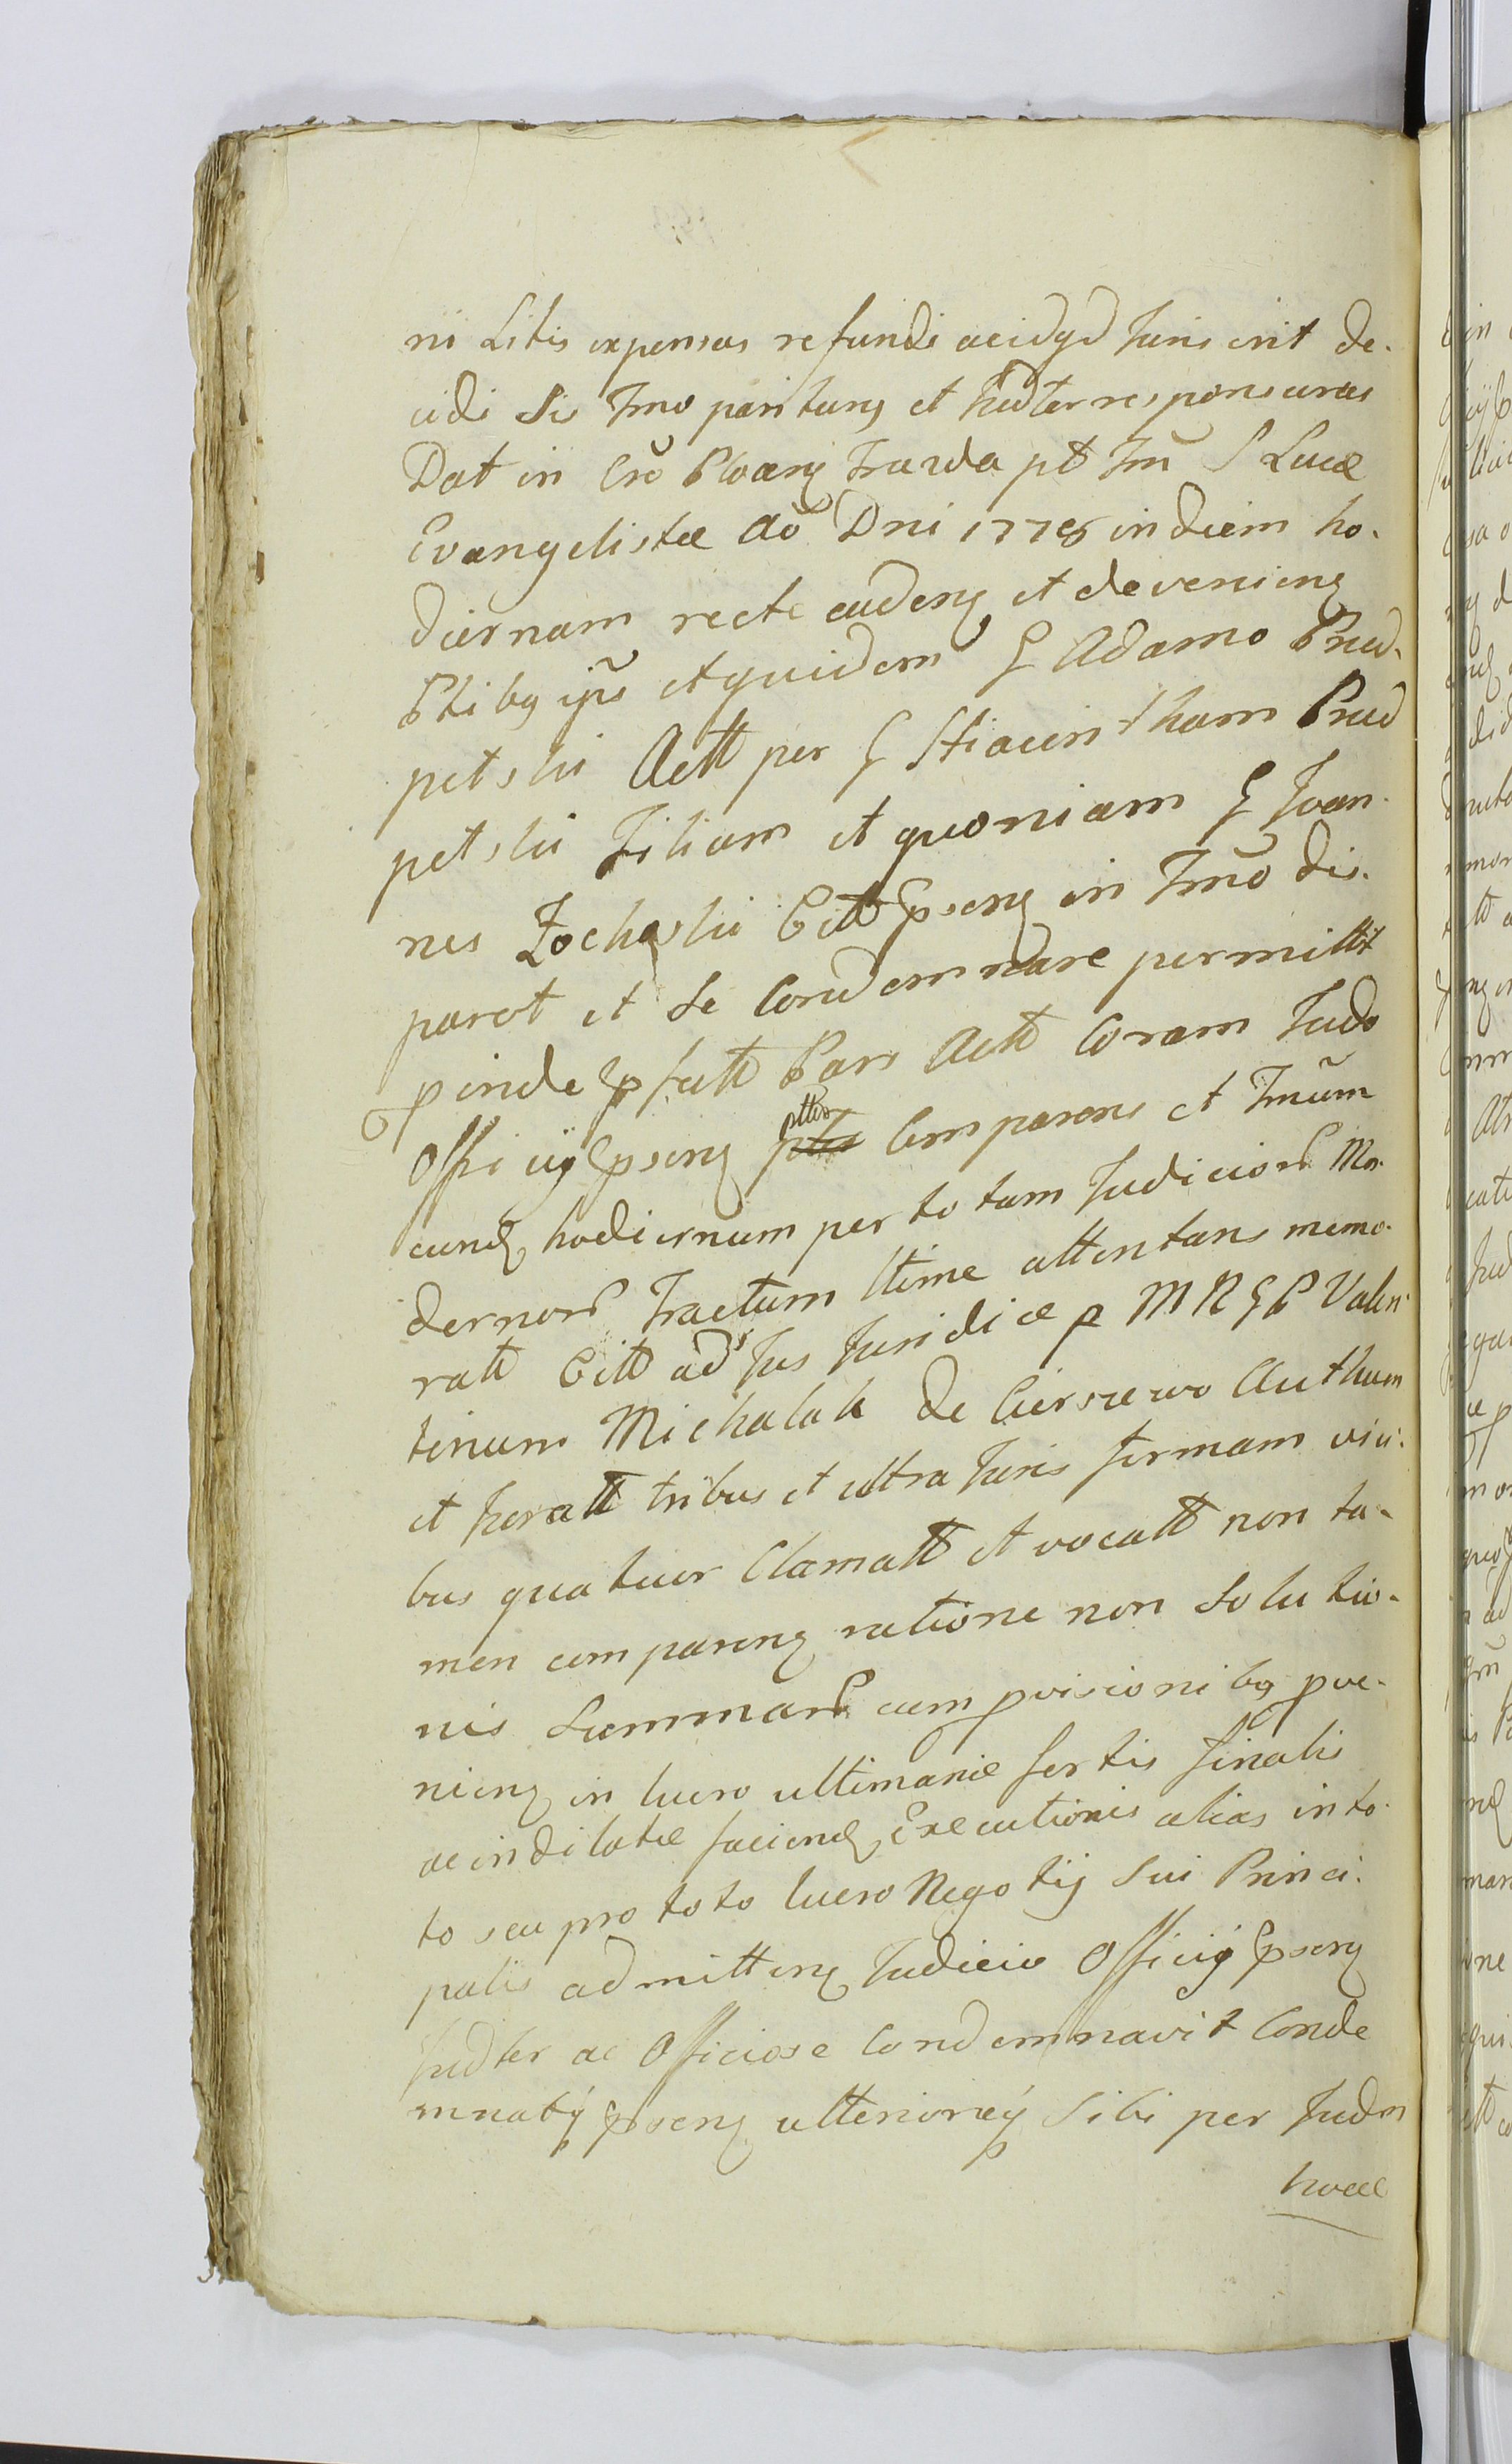 ni Litis expensas refundi acidqd Juris erit de-
cidi Sis Tmo paritury et Judter responsuras
Dat in Cro Ploceny Trawda pt Tm S Lucæ
Evangelistæ Ao Dni 1778 in diem ho-
diernam recte cadeny et devenieny
Ptibg ipis et quidem G Adamo Prud-
petski Actt per G Hiacintham Prud
petski Filium et quoniam G Joan-
nes Zochoski Citt pseny in Tmo dis-
paret et se Condemnare permittit
pinde pfatt Pars Actt Coram Judo
Officij pseny ptter Comparens et Tmum
eund hodiernum per totum Judicior Mo-
dernor Tractum ltime attentans memo-
ratt Citt ad Jus Juridice p M R G P Valen-
tinum Michalak de Cierszewo Authum
et Juratt tribus et ultra Juris formam vici-
bus quatuor Clamatt et vocatt non ta-
men compareny ratione non Solutio-
nis Summar cum pvisionibg pve-
nieny in lucro ultimariæ sortis finalis
ac indilatæ faciend Executionis alias in to-
to seu pro toto lucro Negotij Sui Princi-
palis admitteny Judicio Officij pseny
Judter ac Officiose Condemnavit Conde
mnatq pseny ulterioreq Sibi per Judm
hocce